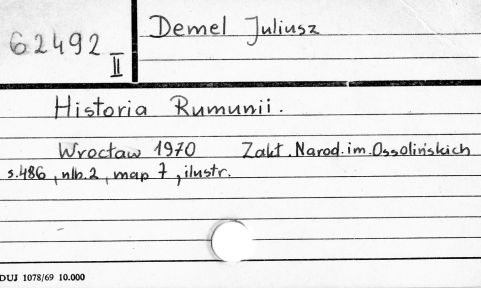 62492
II
Demel Juliusz
Historia Rumunii.
Wrocław 1970 Zakt. Narod. im. Ossolińskich
s.486, nlb.2, map 7, ilustr.
DUJ 1078/69 10.000